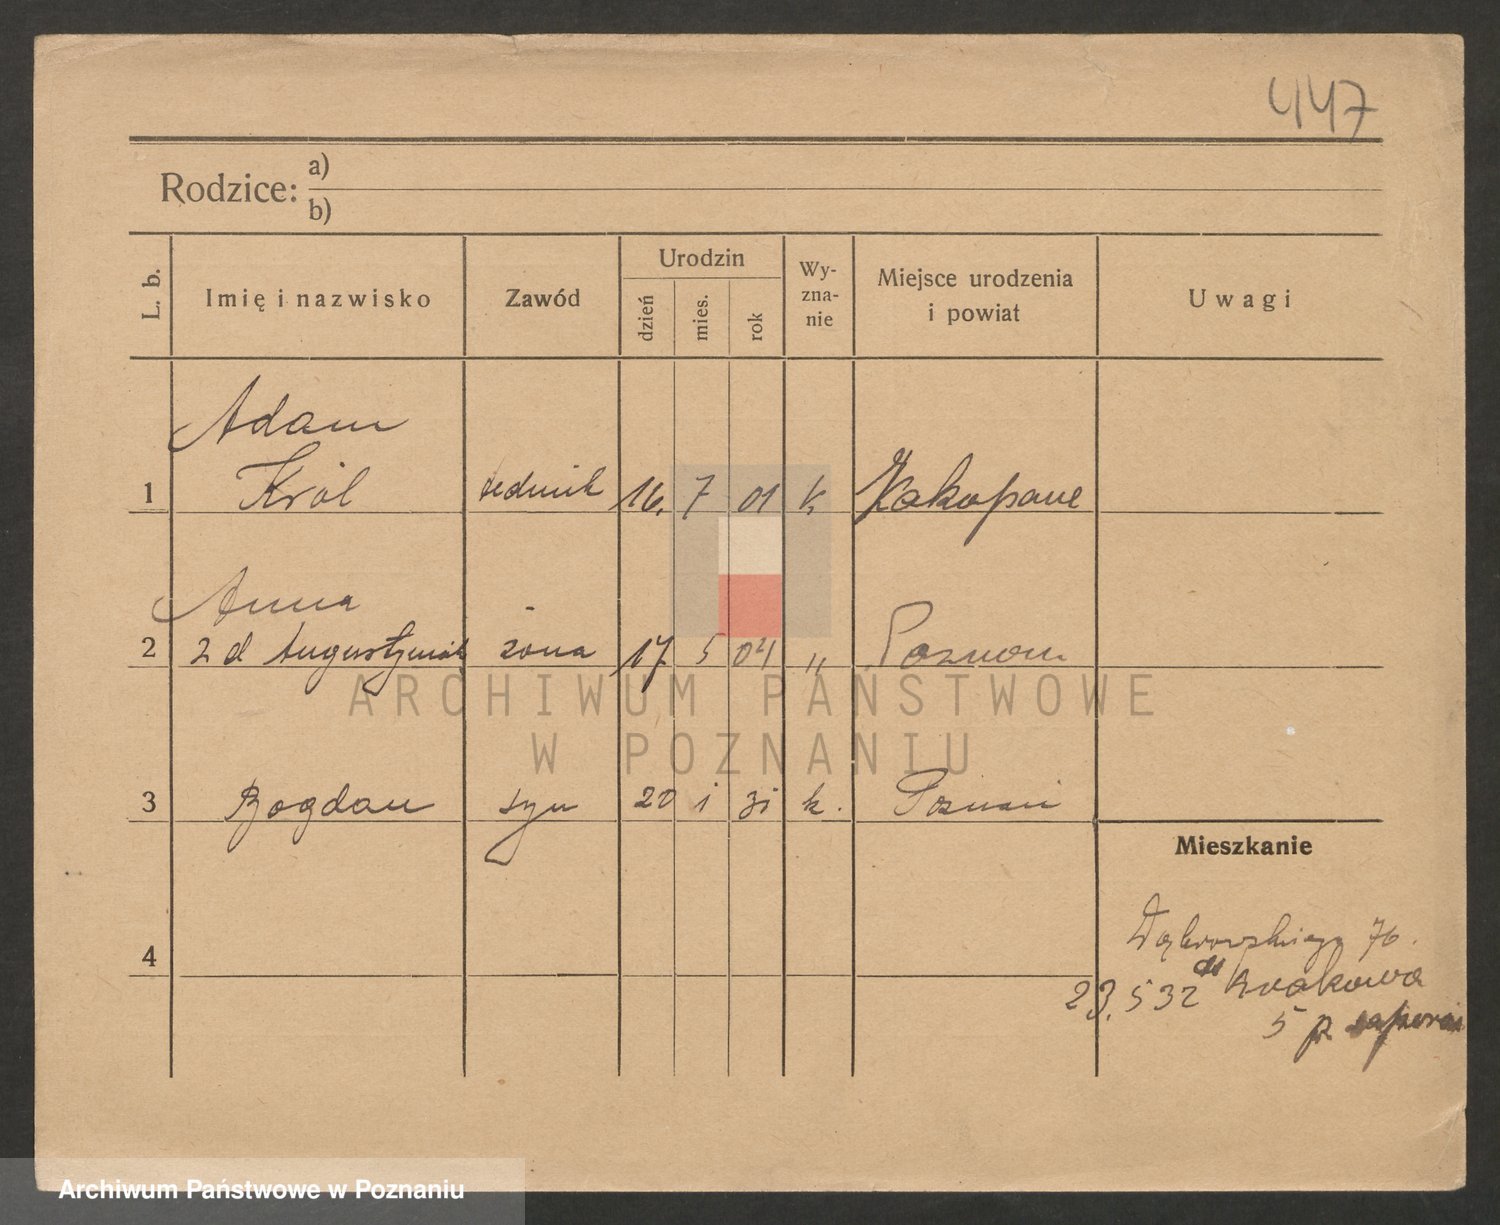 447
Rodzice: a)
b)
L. b.
Imię i nazwisko
Zawód
Urodzin
dzień
mies.
rok
Wy-
zna-
nie
Miejsce urodzenia
i powiat
Uwagi
Adam
1 Król technik 16. 7 01 k. Zakopane
Anna
2 z d Augustyniak żona 17 5 04 " Poznań
3 Bogdan syn 20 1 31 k. Poznań
Mieszkanie
4
Dąbrowskiego 76.
23.5 32 do Krakowa
5 p.
ARCHIWUM PAŃSTWOWE
W POZNANIU
Archiwum Państwowe w Poznaniu